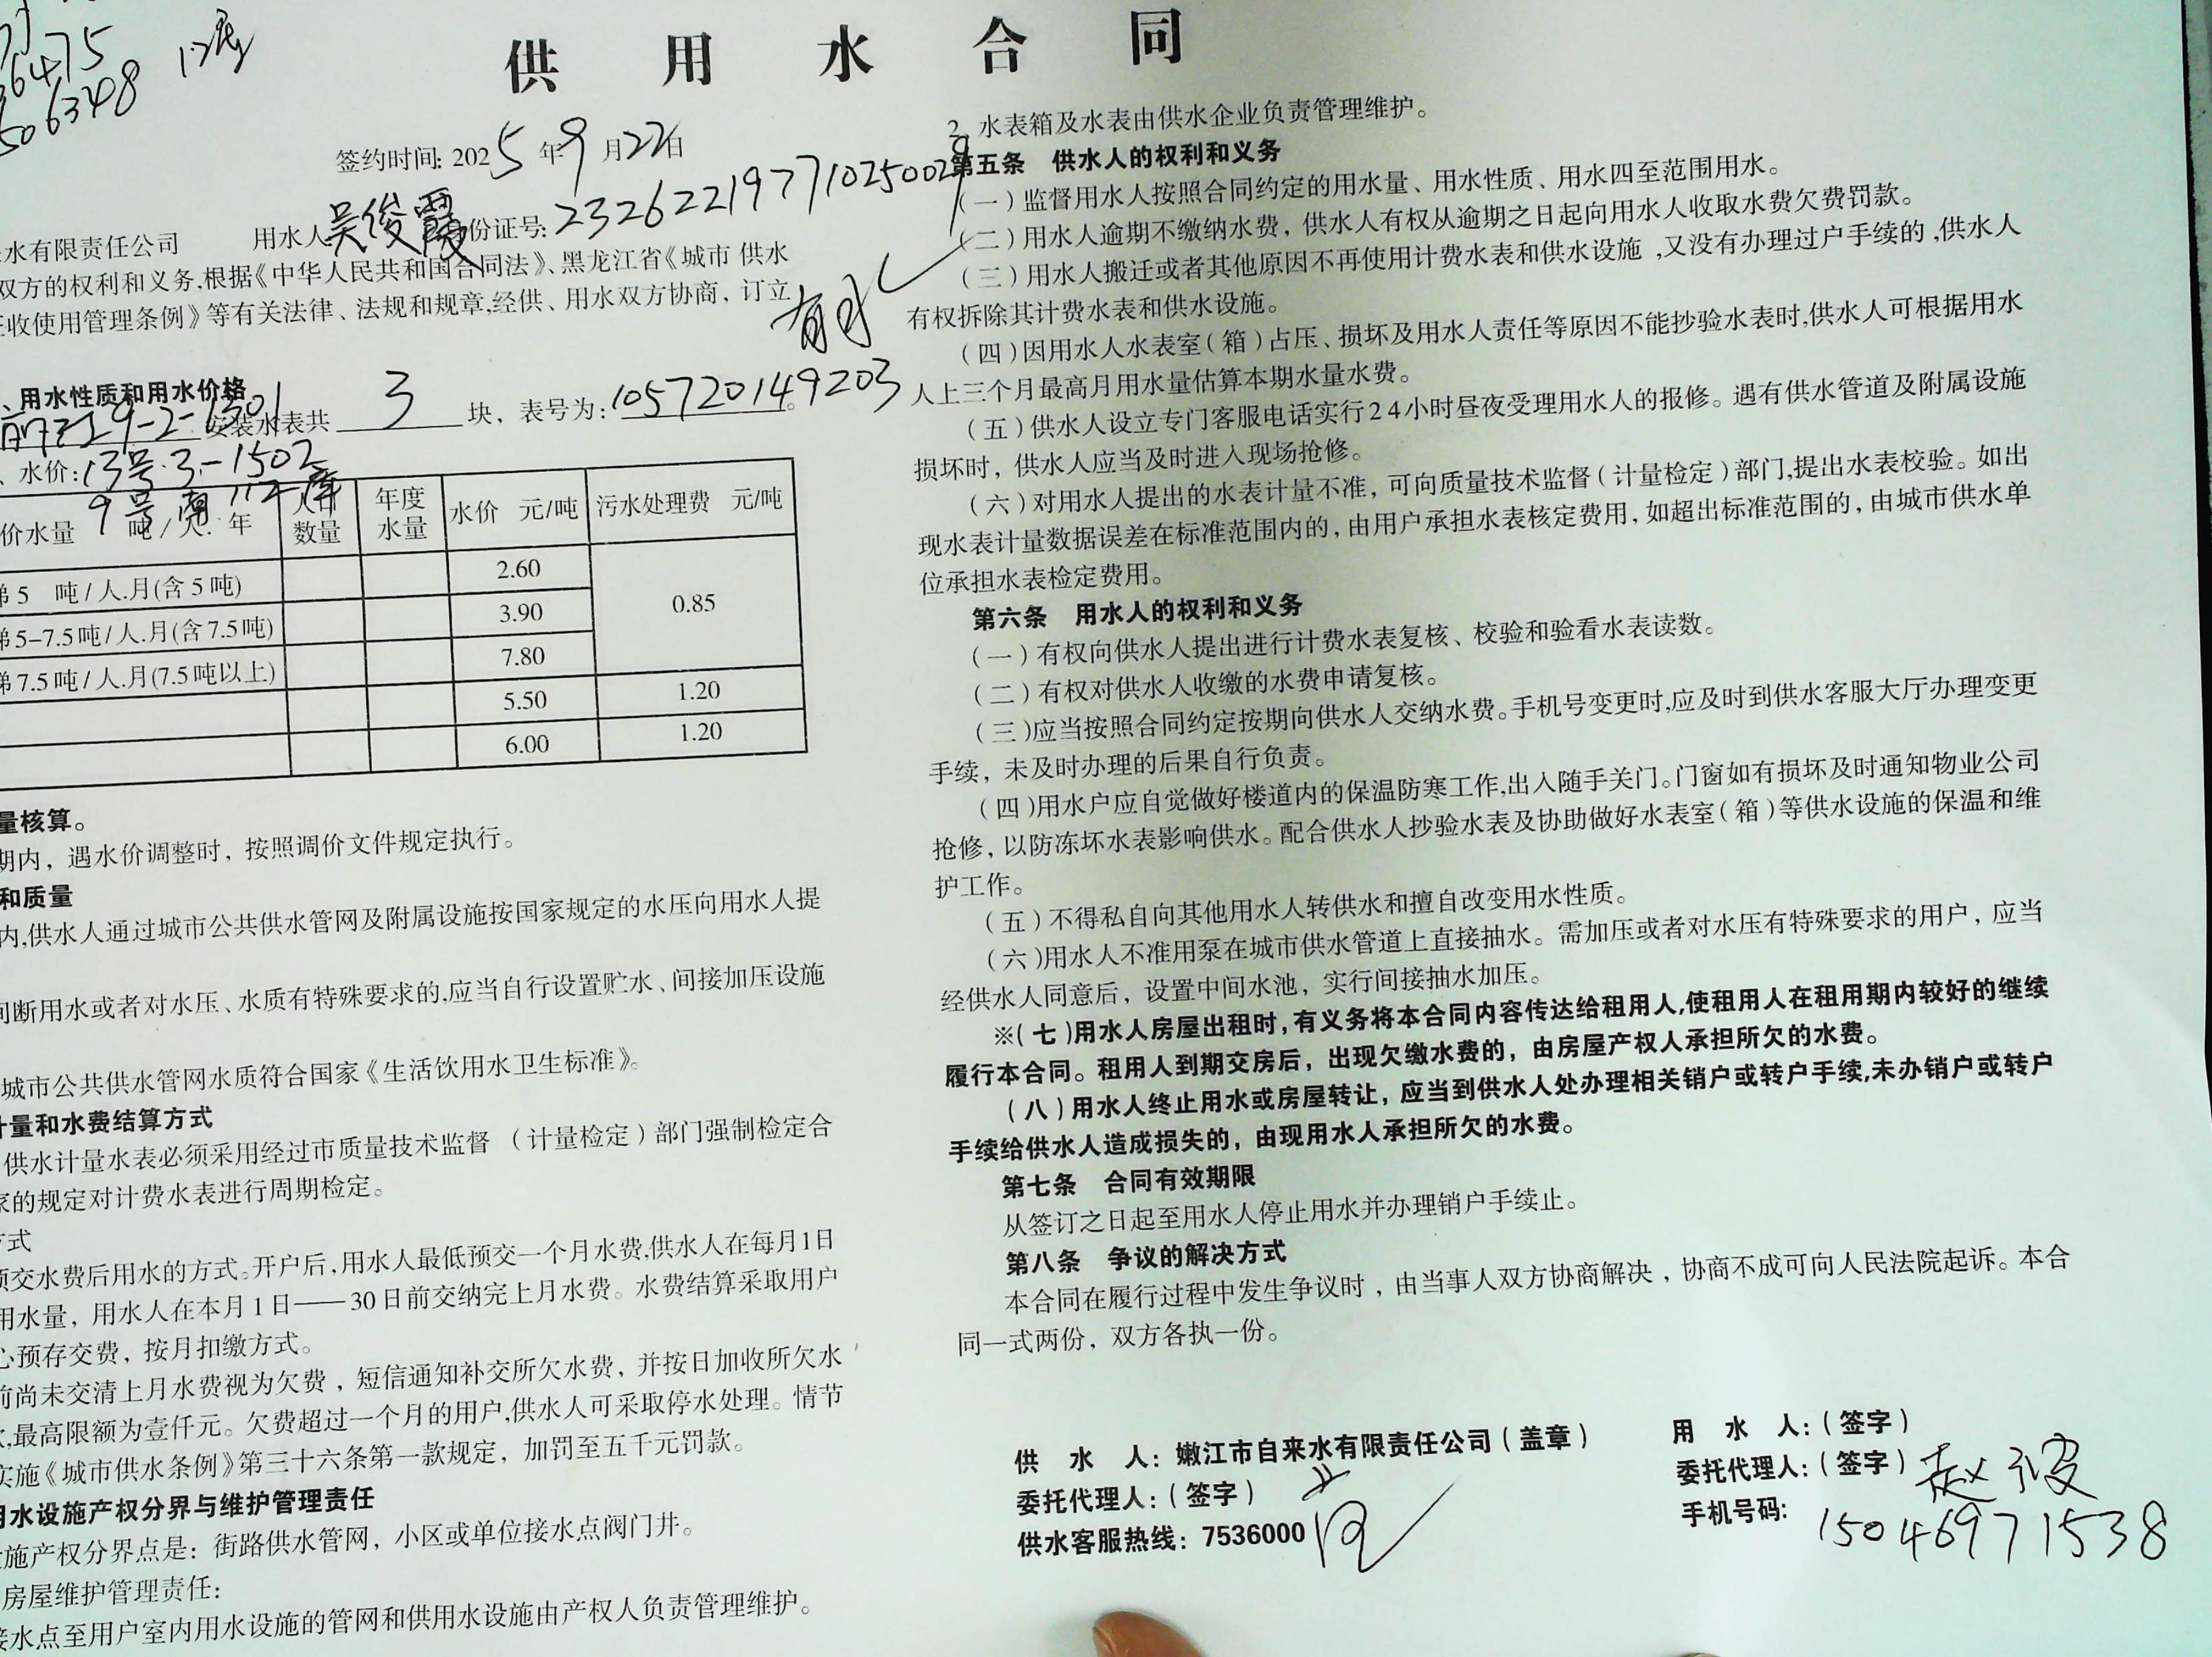 6475
506348
供用水合同
签约时间: 2025年9月22日
水有限责任公司 用水人 吴俊霞 份证号: 232622197710250029
双方的权利和义务,根据《中华人民共和国合同法》、黑龙江省《城市供水
收使用管理条例》等有关法律、法规和规章,经供、用水双方协商，订立
有水
、用水性质和用水价格
19-2-1301 安装水表共 3 块，表号为: 105720149203。
、水价: 13号.3-1502
9号南112库
价水量 吨/人.年 人口数量 年度水量 水价 元/吨 污水处理费 元/吨
梯5 吨/人.月(含5吨) 2.60 0.85
梯5-7.5吨/人.月(含7.5吨) 3.90
梯7.5吨/人.月(7.5吨以上) 7.80
5.50 1.20
6.00 1.20
量核算。
期内，遇水价调整时，按照调价文件规定执行。
和质量
内,供水人通过城市公共供水管网及附属设施按国家规定的水压向用水人提
间断用水或者对水压、水质有特殊要求的,应当自行设置贮水、间接加压设施
城市公共供水管网水质符合国家《生活饮用水卫生标准》。
计量和水费结算方式
供水计量水表必须采用经过市质量技术监督（计量检定）部门强制检定合
家的规定对计费水表进行周期检定。
方式
预交水费后用水的方式。开户后,用水人最低预交一个月水费,供水人在每月1日
用水量，用水人在本月1日——30日前交纳完上月水费。水费结算采取用户
心预存交费，按月扣缴方式。
前尚未交清上月水费视为欠费，短信通知补交所欠水费，并按日加收所欠水
,最高限额为壹仟元。欠费超过一个月的用户,供水人可采取停水处理。情节
实施《城市供水条例》第三十六条第一款规定，加罚至五千元罚款。
用水设施产权分界与维护管理责任
施产权分界点是：街路供水管网，小区或单位接水点阀门井。
房屋维护管理责任：
接水点至用户室内用水设施的管网和供用水设施由产权人负责管理维护。
2、水表箱及水表由供水企业负责管理维护。
第五条 供水人的权利和义务
（一）监督用水人按照合同约定的用水量、用水性质、用水四至范围用水。
（二）用水人逾期不缴纳水费，供水人有权从逾期之日起向用水人收取水费欠费罚款。
（三）用水人搬迁或者其他原因不再使用计费水表和供水设施,又没有办理过户手续的,供水人
有权拆除其计费水表和供水设施。
（四）因用水人水表室（箱）占压、损坏及用水人责任等原因不能抄验水表时,供水人可根据用水
人上三个月最高月用水量估算本期水量水费。
（五）供水人设立专门客服电话实行24小时昼夜受理用水人的报修。遇有供水管道及附属设施
损坏时，供水人应当及时进入现场抢修。
（六）对用水人提出的水表计量不准，可向质量技术监督（计量检定）部门,提出水表校验。如出
现水表计量数据误差在标准范围内的，由用户承担水表核定费用，如超出标准范围的，由城市供水单
位承担水表检定费用。
第六条 用水人的权利和义务
（一）有权向供水人提出进行计费水表复核、校验和验看水表读数。
（二）有权对供水人收缴的水费申请复核。
（三）应当按照合同约定按期向供水人交纳水费。手机号变更时,应及时到供水客服大厅办理变更
手续，未及时办理的后果自行负责。
（四）用水户应自觉做好楼道内的保温防寒工作,出入随手关门。门窗如有损坏及时通知物业公司
抢修，以防冻坏水表影响供水。配合供水人抄验水表及协助做好水表室（箱）等供水设施的保温和维
护工作。
（五）不得私自向其他用水人转供水和擅自改变用水性质。
（六）用水人不准用泵在城市供水管道上直接抽水。需加压或者对水压有特殊要求的用户，应当
经供水人同意后，设置中间水池，实行间接抽水加压。
※（七）用水人房屋出租时，有义务将本合同内容传达给租用人,使租用人在租用期内较好的继续
履行本合同。租用人到期交房后，出现欠缴水费的，由房屋产权人承担所欠的水费。
（八）用水人终止用水或房屋转让，应当到供水人处办理相关销户或转户手续,未办销户或转户
手续给供水人造成损失的，由现用水人承担所欠的水费。
第七条 合同有效期限
从签订之日起至用水人停止用水并办理销户手续止。
第八条 争议的解决方式
本合同在履行过程中发生争议时，由当事人双方协商解决，协商不成可向人民法院起诉。本合
同一式两份，双方各执一份。
供水人：嫩江市自来水有限责任公司（盖章）
委托代理人：（签字）
供水客服热线：7536000
用水人：（签字）
委托代理人：（签字）赵波
手机号码: 15046971538